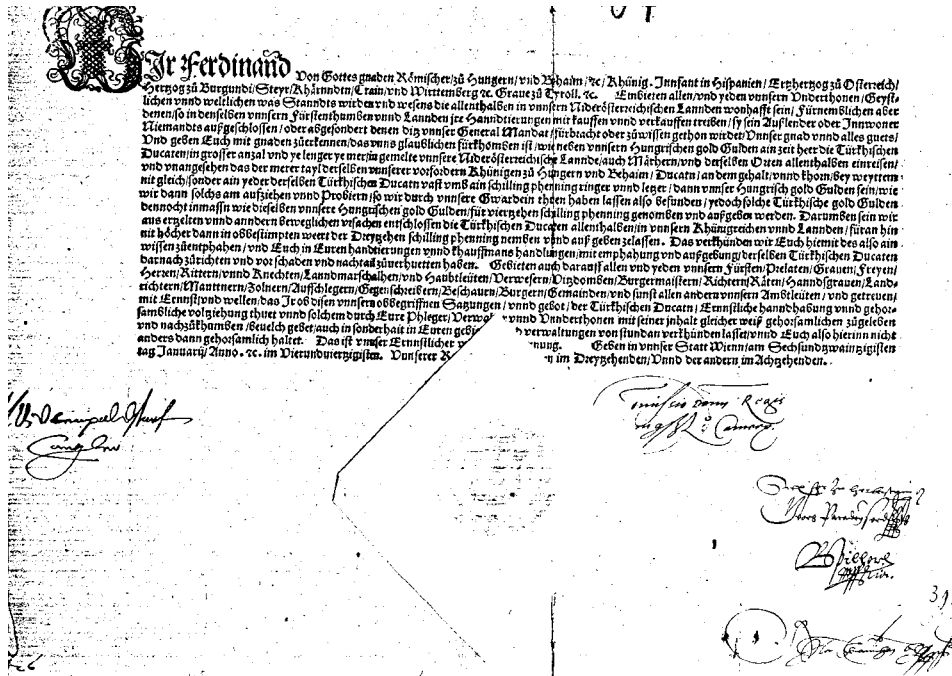 Wir Ferdinand Von Gottes gnaden Römischer/zů Hungern/vnd Behaim/ꝛc/Khünig. Innfant in Hispanien/Ertzherzog zů Osterreich/
Herzog zů Burgundi/Steyr/Khärnndten/Crain/vnd Wirttemberg ꝛc. Graue zů Tyroll. ꝛc. Embieten allen/vnd yeden vnnsern Vnderthonen/Geyst-
lichen vnnd weltlichen was Stanndts wirden vnd wesens die allenthalben in vnnsern Niderösterreichischen Lannden wonhafft sein/Fürnemblichen aber
denen/so in denselben vnnsern Fürstenthumben vnnd Lannden jre Handtierungen mit kauffen vnnd verkauffen treiben/sy sein Auslender oder Innwoner
Niemandts außgeschlossen/oder abgesondert denen diz vnnser General Mandat fürbracht oder zůwissen gethon wirdet/Vnnser gnad vnnd alles guets/
Vnd geben Euch mit gnaden zůerkennen/das vnns glaublichen fürkhomben ist/wie neben vnnsern Hungrischen gold Gulden ain zeit heer die Türckhischen
Ducaten/in grosser anzal vnd ye lenger ye mer/in gemelte vnnsere Niderösterreichische Lannde/auch Märhern/vnd derselben Orten allenthalben einreisen/
vnd vnangesehen das der merer tayl derselben vnnserer vorfordern Khünigen zů Hungern vnd Behaim/Ducaten/an dem gehalt/vnnd khorn/bey weyttem
nit gleich/sonder ain yeder derselben Türkhischen Ducatn vast vmb ain schilling phenning ringer vnnd letzer/dann vnnser Hungrisch gold Gulden sein/wie
wir dann solchs am aufziehen vnnd Probiern/so wir durch vnnsere Gwardein thuen haben lassen also befunden/yedoch solche Türkische gold Gulden
dennocht inmassn wie dieselben vnnsere Hungrischen gold Gulden/für viertzehen schilling phenning genomben vnd außgeben werden. Darumben sein wir
aus erzelten vnnd anndern beweglichen vrsachen entschlossen die Türckischen Ducaten allenthalben/in vnnsern Khünigreichen vnnd Lannden/füran hin
nit höcher dann in obbestimpten weert der Dreytzehen schilling phenning nemben vnnd auß geben zelassen. Das verkhünden wir Euch hiemit des also ain
wissen zůentphahen/vnd Euch in Euren handtierungen vnnd khauffmans handlungen/mit emphahung vnd außgebung/derselben Türkischen Ducaten
darnach zůrichten vnd vor schaden vnd nachtail zůuerhuetten haben. Gebieten auch darauf allen vnd yeden vnnsern Fürsten/Prelaten/Grauen/Freyen/
Herren/Rittern/vnnd Knechten/Lanndmarschalhen/vnd Haubtleüten/Verwesern/Vitzdomben/Burgermaistern/Richtern/Räten/Hanndsgrauen/Land-
richtern/Manttnern/Zolnern/Auffschlegern/Gegenschreibern/Beschauern/Burgern/Gemainden/vnd sunst allen andern vnnsern Ambtleüten/vnd getreuen/
mit Ernnst/vnd wellen/das Jr ob disen vnnsern obbegriffnen Satzungen/vnnd gebot/der Türkischen Ducaten/Ernnstliche hanndhabung vnnd gehor-
sambliche volziehung thuet vnnd solchem durch Eure Phleger/Verwal vnnd Vnnderthonen mit seiner inhalt gleicher weiß gehorsamlichen zůgeleben
vnd nachzůkhumben/beuelch gebet/auch in sonderhait in Euren gebie verwaltungen von stund an verkhünden lasset/vnnd Euch also hierinn nicht
anders dann gehorsamlich haltet. Das ist vnnser Ernnstlicher nung. Geben in vnnser Statt Wienn/am Sechsundzwainzigisten
tag Januarij/Anno. ꝛc. im Vierundviertzigisten. Vnnserer R im Dreytzehenden/Vnnd der andern im Achtzehenden.